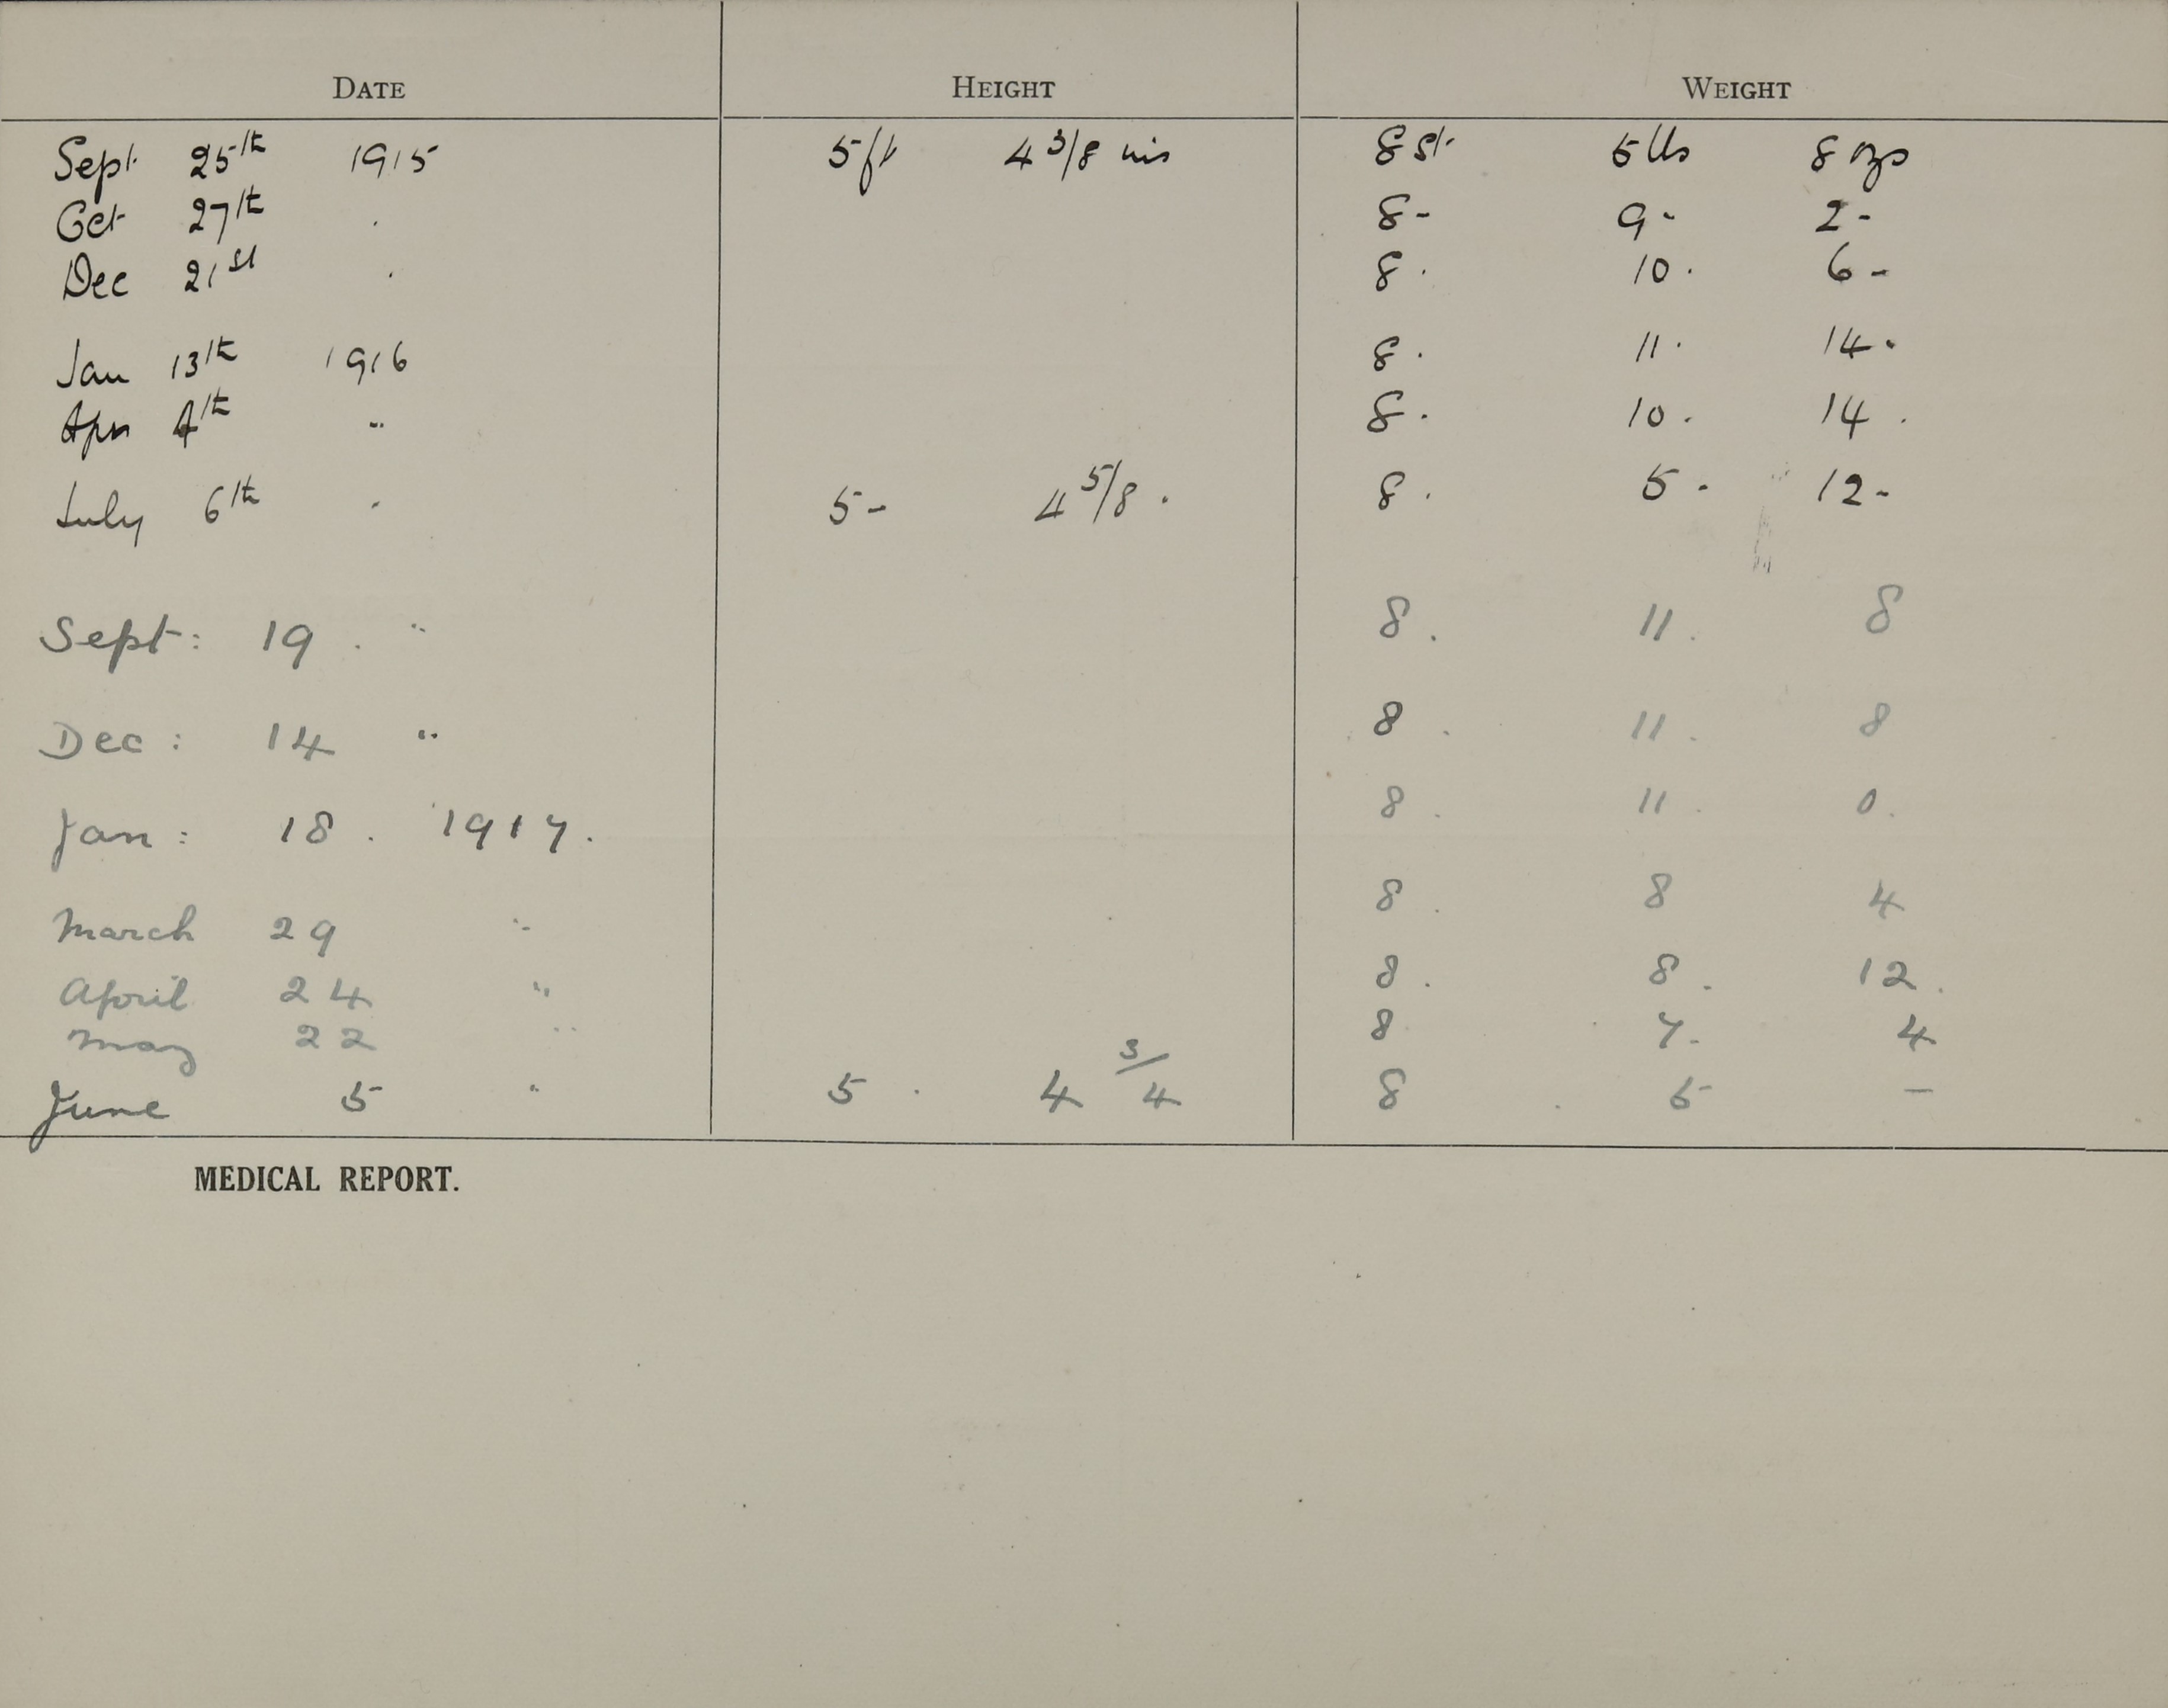 DATE HEIGHT WEIGHT
Sept 25th 1915 5ft 4 3/8 ins 8 st 5 lbs 8 ozs
Oct 27th " 8 - 9 - 2 -
Dec 21st " 8 . 10 . 6 -
Jan 13th 1916 8 . 11 . 14 .
Apr 4th " 8 . 10 . 14 .
July 6th " 5 - 4 5/8 . 8 . 5 - 12 -
Sept: 19 . " 8 . 11 . 8
Dec: 14 " 8 . 11 . 8
Jan: 18 . 1917. 8 . 11 . 0.
March 29 " 8 . 8 4
April 24 " 8 . 8 . 12 .
May 22 " 8 7 - 4
June 5 " 5 . 4 3/4 8 . 5 -
MEDICAL REPORT.